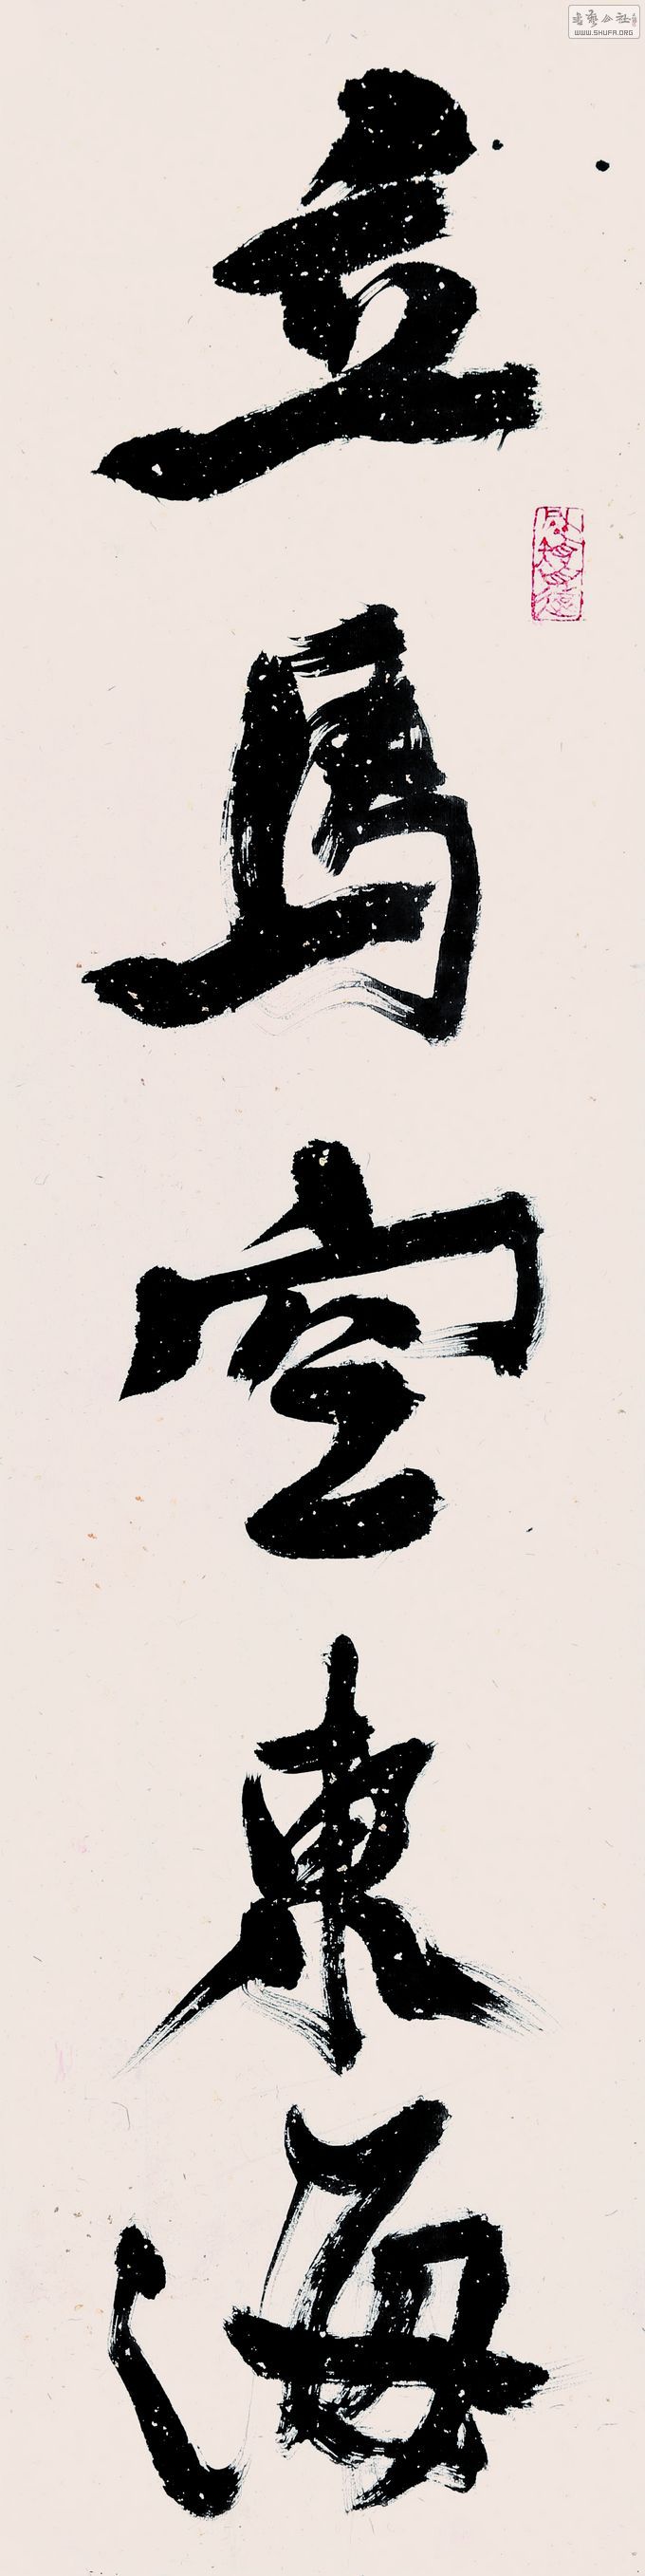 立馬空東海
書藝公社
WWW.SHUFA.ORG